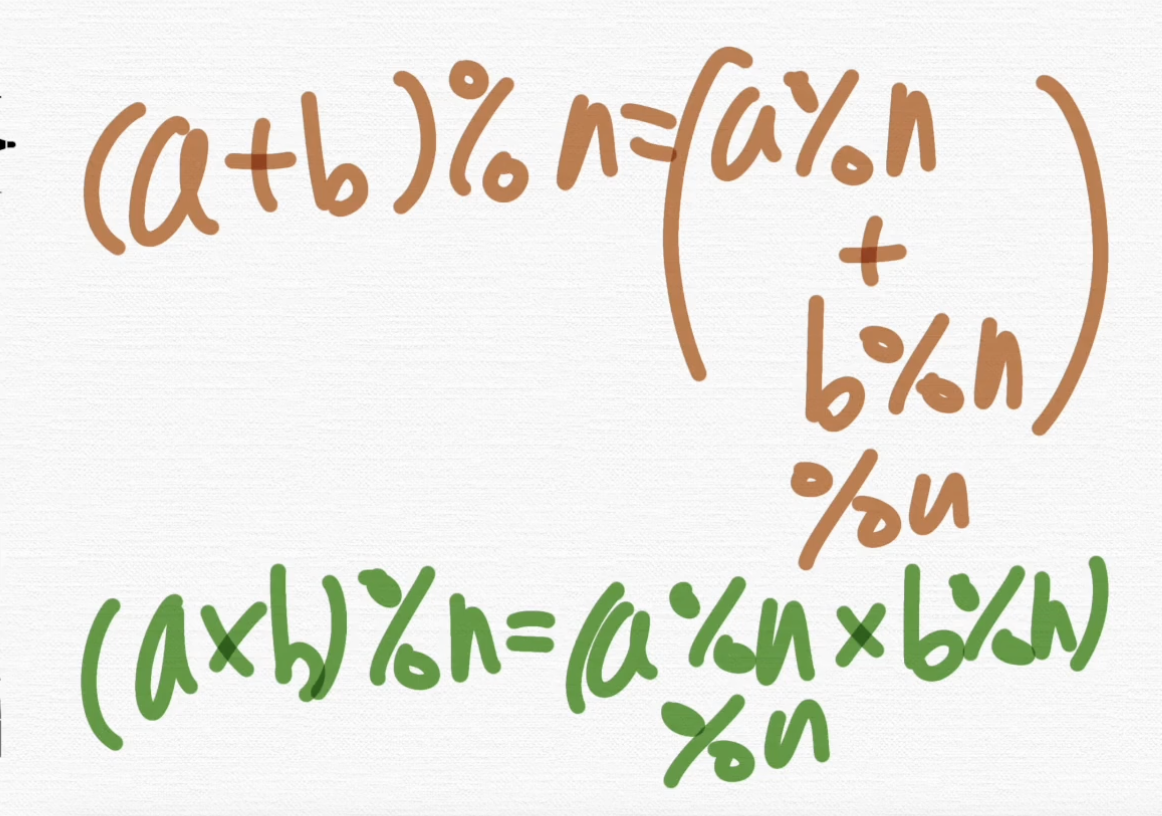 (a+b)%n=(a%n
+
b%n)
%n
(a×b)%n=(a%n×b%n)
%n